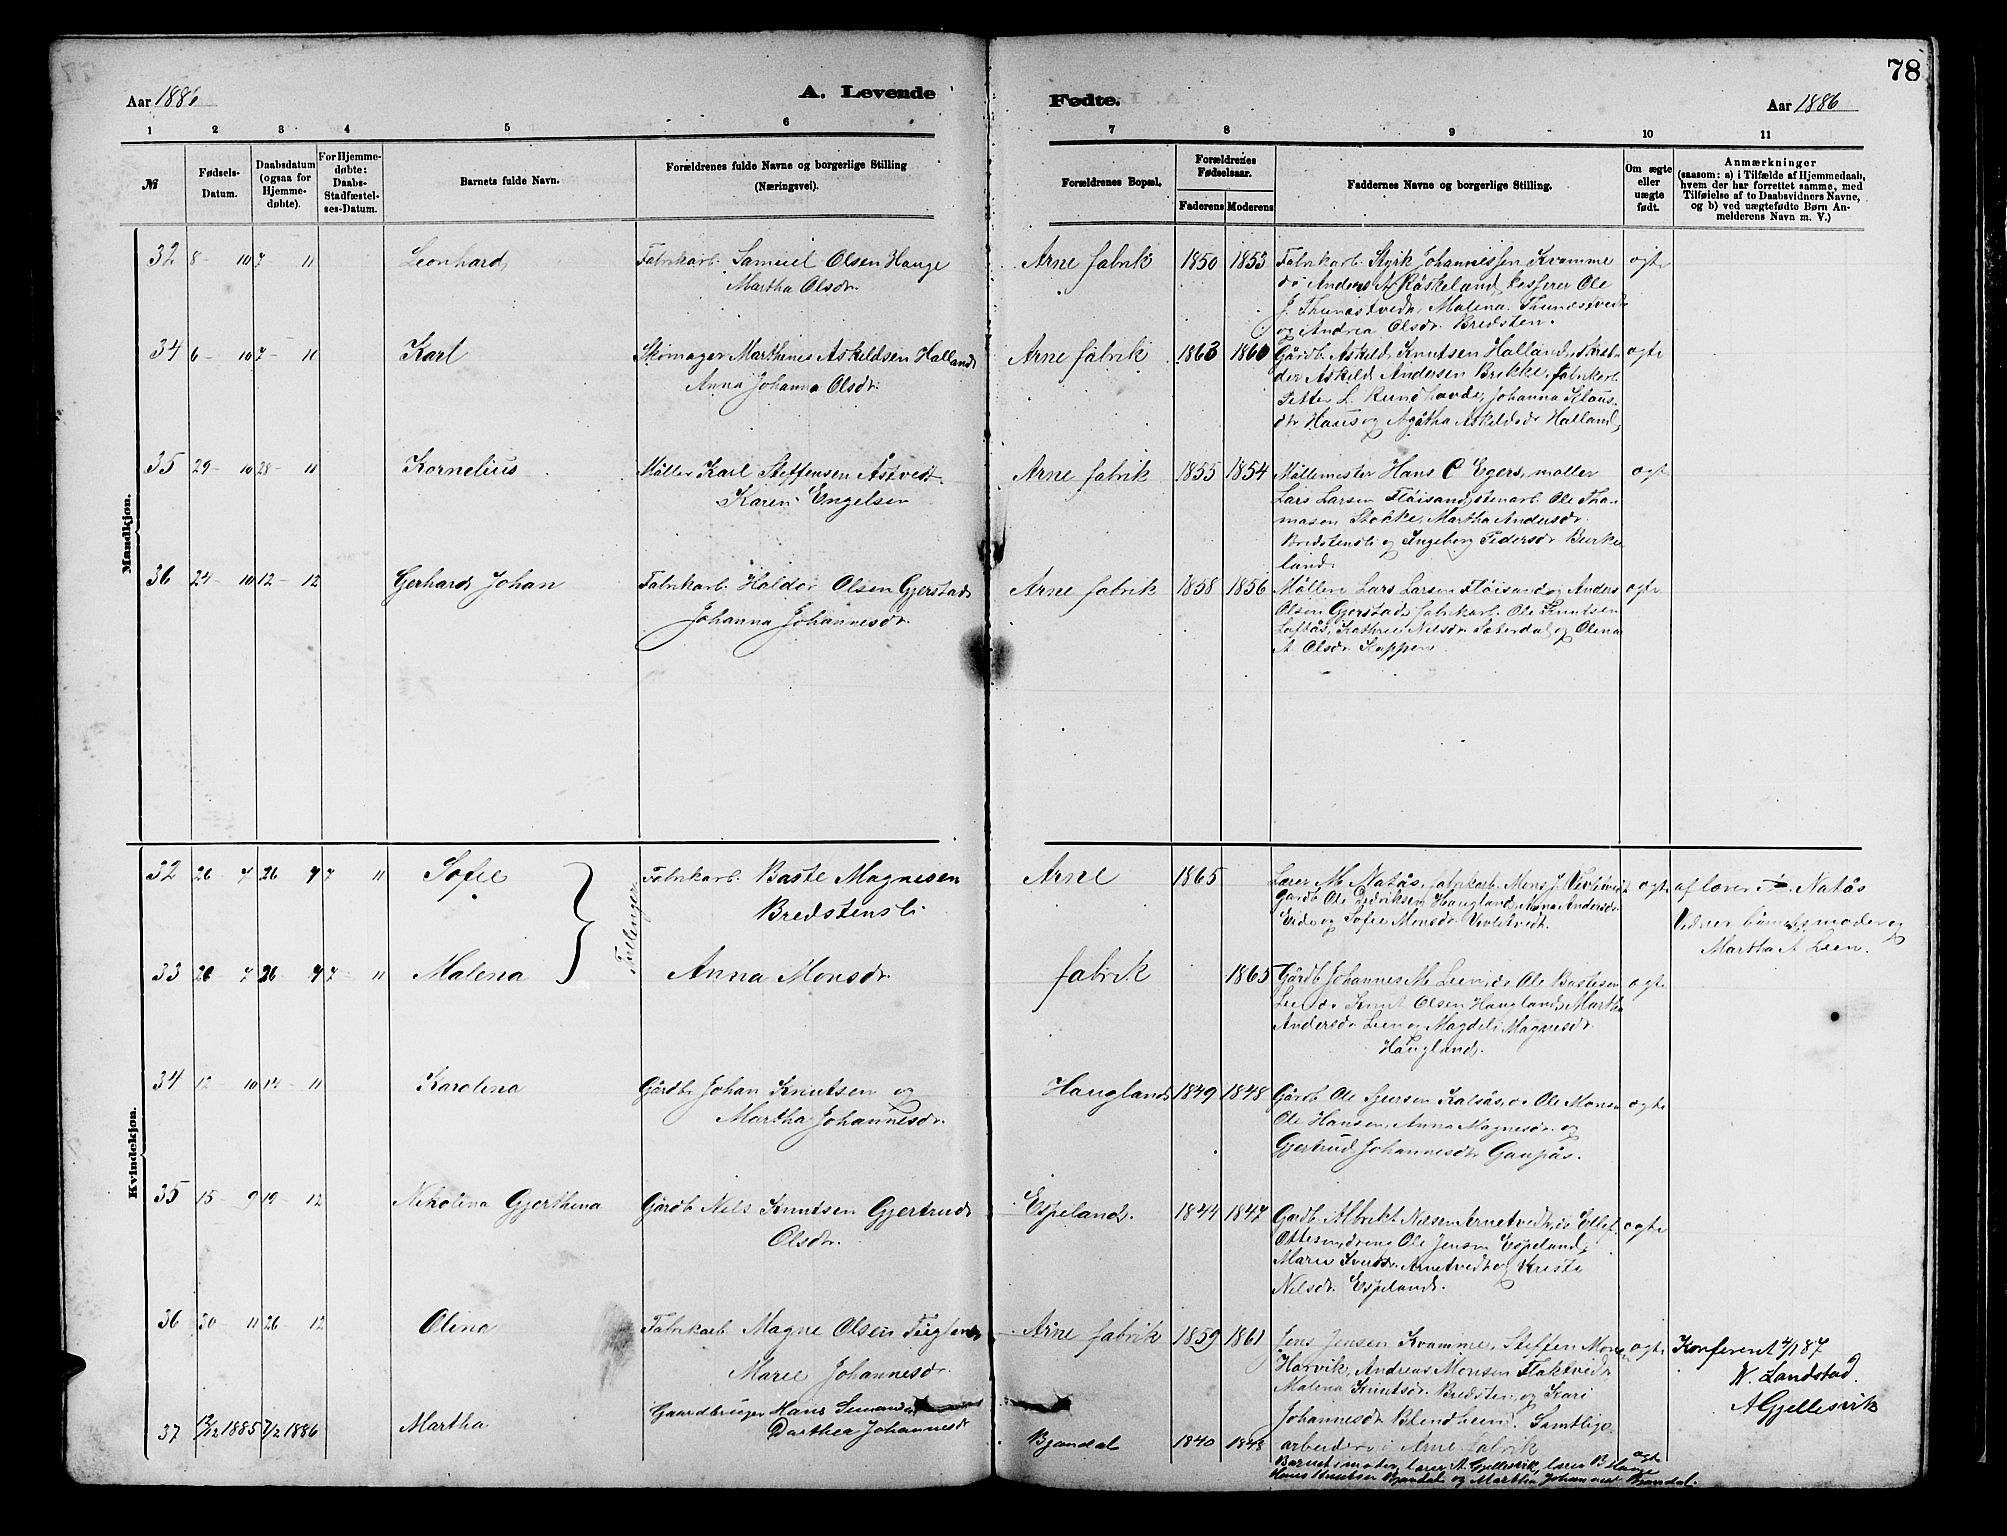 78
Aar 1886
A. Levende
Fødte.
Aar 1886
1 2 3 4 5 6 7 8 9 10 11
№
Fødsels-
Datum.
Daabsdatum
(ogsaa for
Hjemme-
døbte).
For Hjemme-
døbte:
Daabs-
Stadfæstel-
ses-Datum.
Barnets fulde Navn.
Forældrenes fulde Navne og borgerlige Stilling
(Næringsvei).
Forældrenes Bopæl.
Forældrenes
Fødselsaar.
Faderens Moderens
Faddernes Navne og borgerlige Stilling.
Om ægte
eller
uægte
født.
Anmærkninger
(saasom: a) i Tilfælde af Hjemmedaab,
hvem der har forrettet samme, med
Tilføielse af to Daabsvidners Navne,
og b) ved uægtefødte Børn An-
melderens Navn m. V.)
Mandkjøn.
32 8 - 10 7 - 11 Leonhard
Fabrikarb. Samuel Olsen Hauge
Martha Olsdr.
Arne fabrik 1850 1853
Fabrikarb. Styrk Johannessen Kvamme
do Anders A Røskeland, Ole
J. Thunestvedt, Malena Thunestvedt
og Andrea Olsdr. Bredsten.
ægte
34 6 - 10 7 - 11 Karl
Skomager Marthines Askildsen Halland
Anna Johanna Olsdr.
Arne fabrik 1863 1860
Gårdb. Askild Knutsen Halland,
Askild Andersen Brekke, fabrikarb.
Petter L. Rundhovde, Johanna Klaus-
dr Haus og Agåtha Askildsdr Halland
ægte
35 29 - 10 28 - 11 Kornelius
Møller Karl Steffensen Astvedt
Karen Engelsen
Arne fabrik 1855 1854
Møllemester Hans C Egers, møller
Lars Larsen Fløisand, stenarb. Ole Tho-
masen Stokke, Martha Andersdr.
Bredstensli og Ingeborg Pedersdr Birke
land.
ægte
36 24 - 10 12 - 12 Gerhard Johan
Fabrikarb. Haldor Olsen Gjerstad
Johanna Johannesdr.
Arne fabrik 1858 1856
Møllere Lars Larsen Fløisand og Anders
Olsen Gjerstad, fabrikarb. Ole Knutsen
Loftås, Kathrine Nilsdr. og Olena
A. Olsdr
ægte
Kvindekjøn.
32 26 7 26 7 7 11 Sofie
Tvillinger
Fabrikarb. Baste Magnesen
Bredstensli
Arne 1865
Lærer M. Natås, fabrikarb. Mons J. Vivletvedt
Gårdb. Ole Didriksen Haugland, Anna Andersdr.
Eide og Sofie Monsdr. Vivletvedt.
ægte
af lærer Natås
Vidner barnets moder og
Martha A Leen.
33 26 7 26 7 7 11 Malena
Anna Monsdr.
fabrik 1865
Gårdb. Johannes M. Leen, do Ole Bastesen
Leen, do Knut Olsen Haugland, Martha
Andersdr Leen og Magdeli Magnesdr.
Haugland.
ægte
34 12 - 10 14 - 11 Karolina
Gårdb. Johan Knutsen og
Martha Johannesdr.
Haugland 1849 1848
Gårdb. Ole Sjursen Kalsås, do Ole Monsen
Ole Hansen, Anna Magnesdr. og
Gjertrud Johannesdr Gaupås.
ægte
35 15 - 9 19 - 12 Nikolina Gjerthina
Gårdb. Nils Knutsen Gjertrud
Olsdr.
Espeland. 1844 1847
Gårdb. Albrikt Nilsen Arnetvedt, do Ellef
Ottesen, dreng Ole Jensen Espeland,
Marie Iversdr. Arnetvedt og Kristi
Nilsdr. Espeland.
ægte
36 30 - 11 26 - 12 Olina
Fabrikarb. Magne Olsen Tveiten
Marie Johannesdr.
Arne fabrik 1859 1861
Jens Jensen Kvamme, Steffen Monsen
Harvik, Andreas Monsen Flaktvedt
Malena Knutsdr. Bredsten og Kari
Johannesdr Blendheim. Samtlige
arbeidere i Arne fabrik
ægte
Konfereret 4/1 87
N. Landstad
A Gjellesvik
37 12/12 1885 7/2 1886 Martha
Gaardbruger Hans Simonsen
Darthea Johannesdr
Bjøndal 1840 1843
Barnets moder, lærer A. Gjellesvik, lærer B Hauge
Hans Knutsen Bjøndal og Martha Johannesdr Bjøndal.
ægte